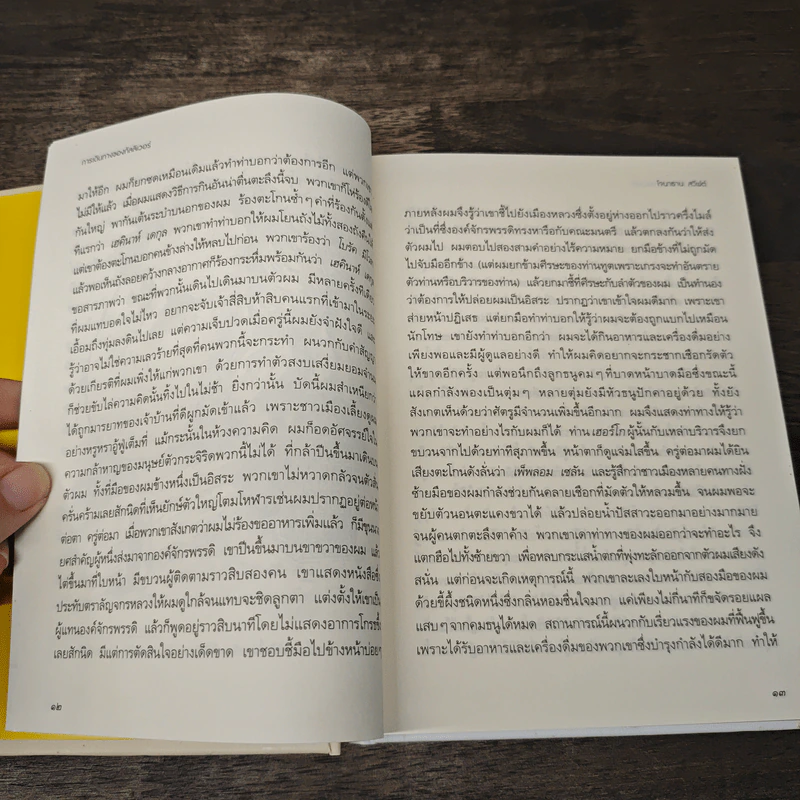 การเดินทางของกัลลิเวอร์
มาให้อีก ผมก็ยกซดเหมือนเดิมแล้วทำท่าบอกว่าต้องการอีก แต่พวกเขา
ไม่มีให้แล้ว เมื่อผมแสดงวิธีการกินอันน่าตื่นตะลึงนี้จบ พวกเขาก็โห่ร้อง
กันใหญ่ พากันเต้นระบำบนอกของผม ร้องตะโกนซ้ำๆ คำที่ร้องกันตั้งแต่
ที่แรกว่า เฮคินาห์ เดกูล พวกเขาทำท่าบอกให้ผมโยนถังไม้ทั้งสองถัง
แต่เขาต้องตะโกนบอกคนข้างล่างให้หลบไปก่อน พวกเขาร้องว่า โบรัค
แล้วพอเห็นถังลอยคว้างกลางอากาศก็ร้องกระหึ่มพร้อมกันว่า เฮคินาห์ เดกูล
ขอสารภาพว่า ขณะที่พวกนั้นเดินไปเดินมาบนตัวผม มีหลายครั้งที่
ที่ผมแทบอดใจไม่ไหว อยากจะจับเจ้าสี่สิบห้าสิบคนแรกที่เข้ามาใน
เอื้อมถึงทุ่มลงดินไปเลย แต่ความเจ็บปวดเมื่อครู่นี้ผมยังจำฝังใจดี และ
รู้ว่าอาจไม่ใช่ความเลวร้ายที่สุดที่คนพวกนี้จะกระทำ ผนวกกับคำสัญญา
ด้วยเกียรติที่ผมเพิ่งให้แก่พวกเขา ด้วยการทำตัวสงบเสงี่ยมยอมจำนน
ก็ช่วยขับไล่ความคิดนั้นทิ้งไปในไม่ช้า ยิ่งกว่านั้น บัดนี้ผมสำเหนียกว่า
ได้ถูกมารยาทของเจ้าบ้านที่ดีผูกมัดเข้าแล้ว เพราะชาวเมืองเลี้ยงดูผม
อย่างหรูหราอู้ฟู่เต็มที่ แม้กระนั้นในห้วงความคิด ผมก็อดอัศจรรย์ใจ
ความกล้าหาญของมนุษย์ตัวกระจิริดพวกนี้ไม่ได้ ที่กล้าปีนขึ้นมาเดิน
ตัวผม ทั้งที่มือของผมข้างหนึ่งเป็นอิสระ พวกเขาไม่หวาดกลัวจนตัวสั่น
ครั่นคร้ามเลยสักนิดที่เห็นยักษ์ตัวใหญ่โตมโหฬารเช่นผมปรากฏอยู่ต่อหน้า
ต่อตา ครู่ต่อมา เมื่อพวกเขาสังเกตว่าผมไม่ร้องขออาหารเพิ่มแล้ว ก็มีขุนนาง
ยศสำคัญผู้หนึ่งส่งมาจากองค์จักรพรรดิ เขาปีนขึ้นมาบนขาขวาของผม แล้ว
ไต่ขึ้นมาที่ใบหน้า มีขบวนผู้ติดตามราวสิบสองคน เขาแสดงหนังสือซึ่ง
ประทับตราลัญจกรหลวงให้ผมดูใกล้จนแทบจะชิดลูกตา แต่งตั้งให้เขาเป็น
ผู้แทนองค์จักรพรรดิ แล้วก็พูดอยู่ราวสิบนาทีโดยไม่แสดงอาการโกรธขึ้ง
เลยสักนิด มีแต่การตัดสินใจอย่างเด็ดขาด เขาชอบชี้มือไปข้างหน้าบ่อยๆ
๑๒
โจนาธาน สวิฟต์
ภายหลังผมจึงรู้ว่าเขาชี้ไปยังเมืองหลวงซึ่งตั้งอยู่ห่างออกไปราวครึ่งไมล์
ว่าเป็นที่ซึ่งองค์จักรพรรดิทรงหารือกับคณะมนตรี แล้วตกลงกันว่าให้ส่ง
ตัวผมไป ผมตอบไปสองสามคำอย่างไร้ความหมาย ยกมือข้างที่ไม่ถูกมัด
ไปจับมืออีกข้าง (แต่ผมยกข้ามศีรษะของท่านทูตเพราะเกรงจะทำอันตราย
ตัวท่านหรือบริวารของท่าน) แล้วยกมาชี้ที่ศีรษะกับลำตัวของผม เป็นทำนอง
ว่าต้องการให้ปล่อยผมเป็นอิสระ ปรากฏว่าเขาเข้าใจผมดีมาก เพราะเขา
ส่ายหน้าปฏิเสธ แต่ยกมือทำท่าบอกให้รู้ว่าผมจะต้องถูกแบกไปเหมือน
นักโทษ เขายังทำท่าบอกอีกว่า ผมจะได้กินอาหารและเครื่องดื่มอย่าง
เพียงพอและมีผู้ดูแลอย่างดี ทำให้ผมคิดอยากจะกระชากเชือกรัดตัว
ให้ขาดอีกครั้ง แต่พอนึกถึงลูกธนูคมๆ ที่บาดหน้าบาดมือซึ่งขณะนี้
แผลกำลังพองเป็นตุ่มๆ หลายตุ่มยังมีหัวธนูปักคาอยู่ด้วย ทั้งยัง
สังเกตเห็นด้วยว่าศัตรูมีจำนวนเพิ่มขึ้นอีกมาก ผมจึงแสดงท่าทางให้รู้ว่า
พวกเขาจะทำอย่างไรกับผมก็ได้ ท่านเฮอร์โกผู้นั้นกับเหล่าบริวารจึงยก
ขบวนจากไปด้วยท่าทีสุภาพขึ้น หน้าตาก็ดูแจ่มใสขึ้น ครู่ต่อมาผมได้ยิน
เสียงตะโกนดังลั่นว่า เพ็พลอม เซลัน และรู้สึกว่าชาวเมืองหลายคนทางฝั่ง
ซ้ายมือของผมกำลังช่วยกันคลายเชือกที่มัดตัวให้หลวมขึ้น จนผมพอจะ
ขยับตัวนอนตะแคงขวาได้ แล้วปล่อยน้ำปัสสาวะออกมาอย่างมากมาย
จนผู้คนตกตะลึงตาค้าง พวกเขาเดาท่าทางของผมออกว่าจะทำอะไร จึง
แตกฮือไปทั้งซ้ายขวา เพื่อหลบกระแสน้ำตกที่พุ่งทะลักออกจากตัวผมเสียงดัง
สนั่น แต่ก่อนจะเกิดเหตุการณ์นี้ พวกเขาละเลงใบหน้ากับสองมือของผม
ด้วยขี้ผึ้งชนิดหนึ่งซึ่งกลิ่นหอมชื่นใจมาก แค่เพียงไม่กี่นาทีก็ขจัดรอยแผล
แสบๆ จากคมธนูได้หมด สถานการณ์นี้ผนวกกับเรี่ยวแรงของผมที่ฟื้นฟูขึ้น
เพราะได้รับอาหารและเครื่องดื่มของพวกเขาซึ่งบำรุงกำลังได้ดีมาก ทำให้
๑๓